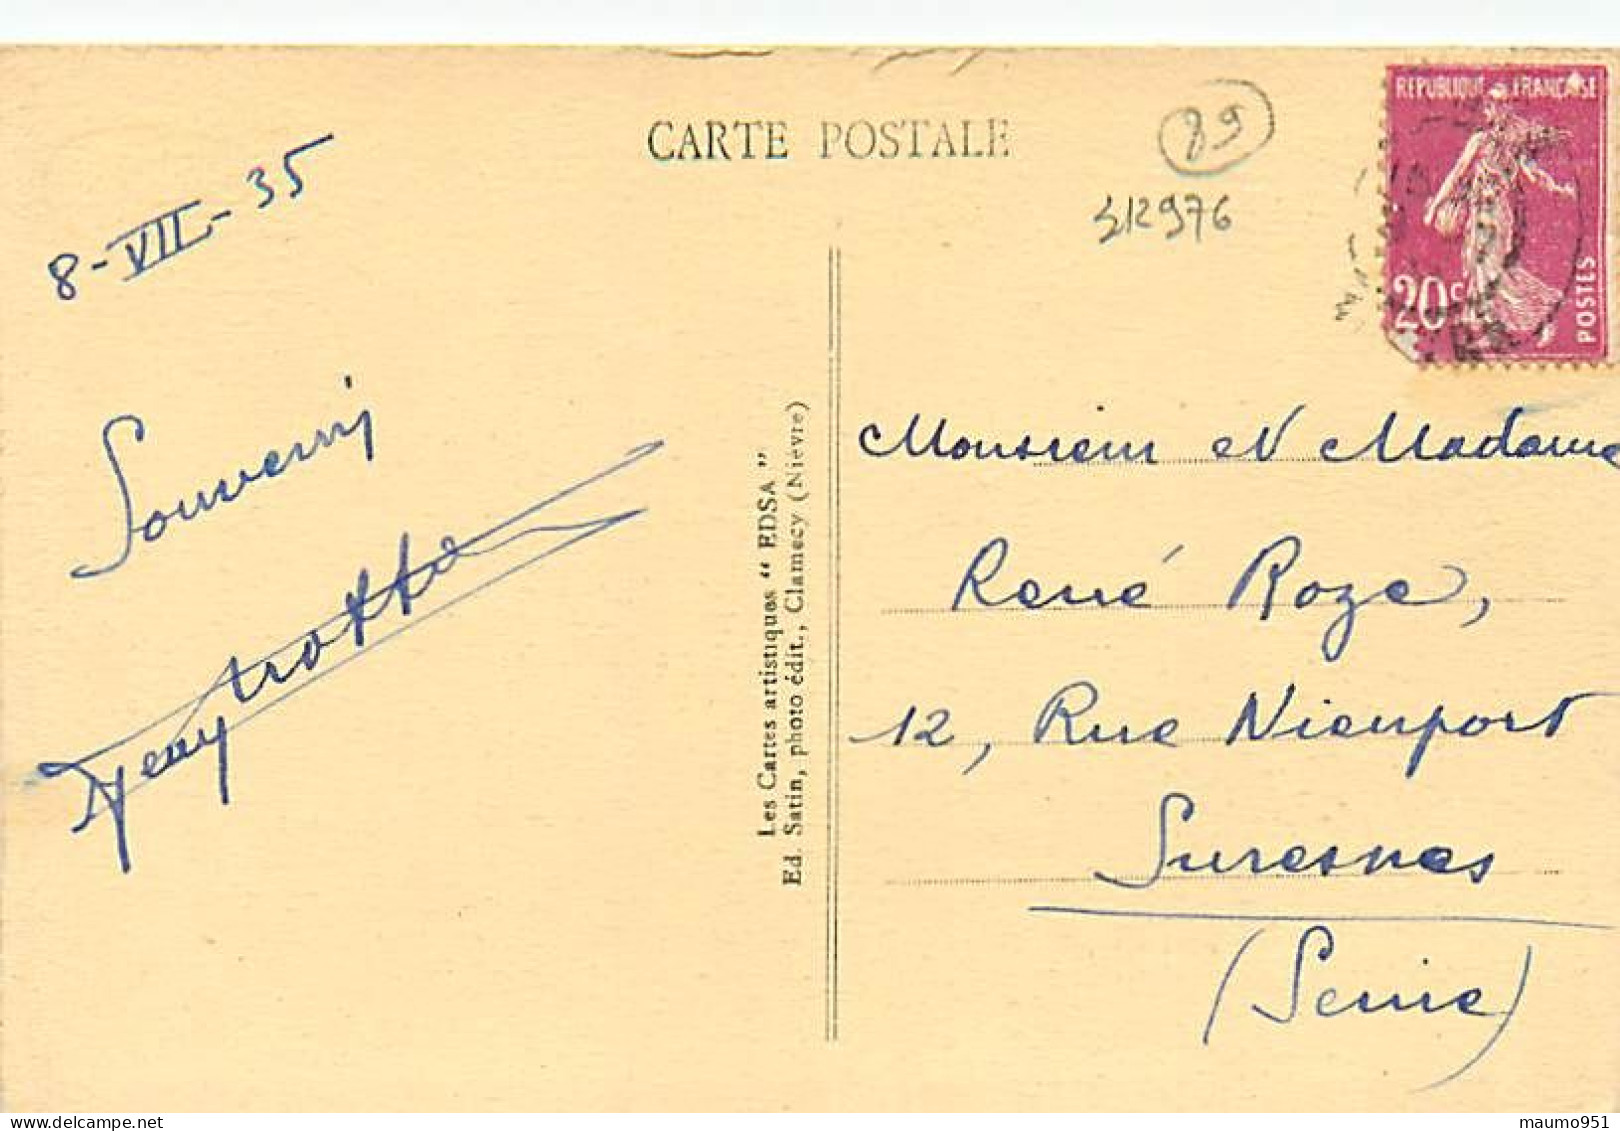 CARTE POSTALE
89
312976
REPUBLIQUE FRANCAISE
20c
POSTES
8-VII-35
Souvenir
Les Cartes artistiques “ EDSA ”
Ed. Satin, photo édit., Clamecy (Nièvre)
Monsieur et Madame
René Roze,
12, Rue Nieuport
Suresnes
(Seine)
www.delcampe.net
maumo951